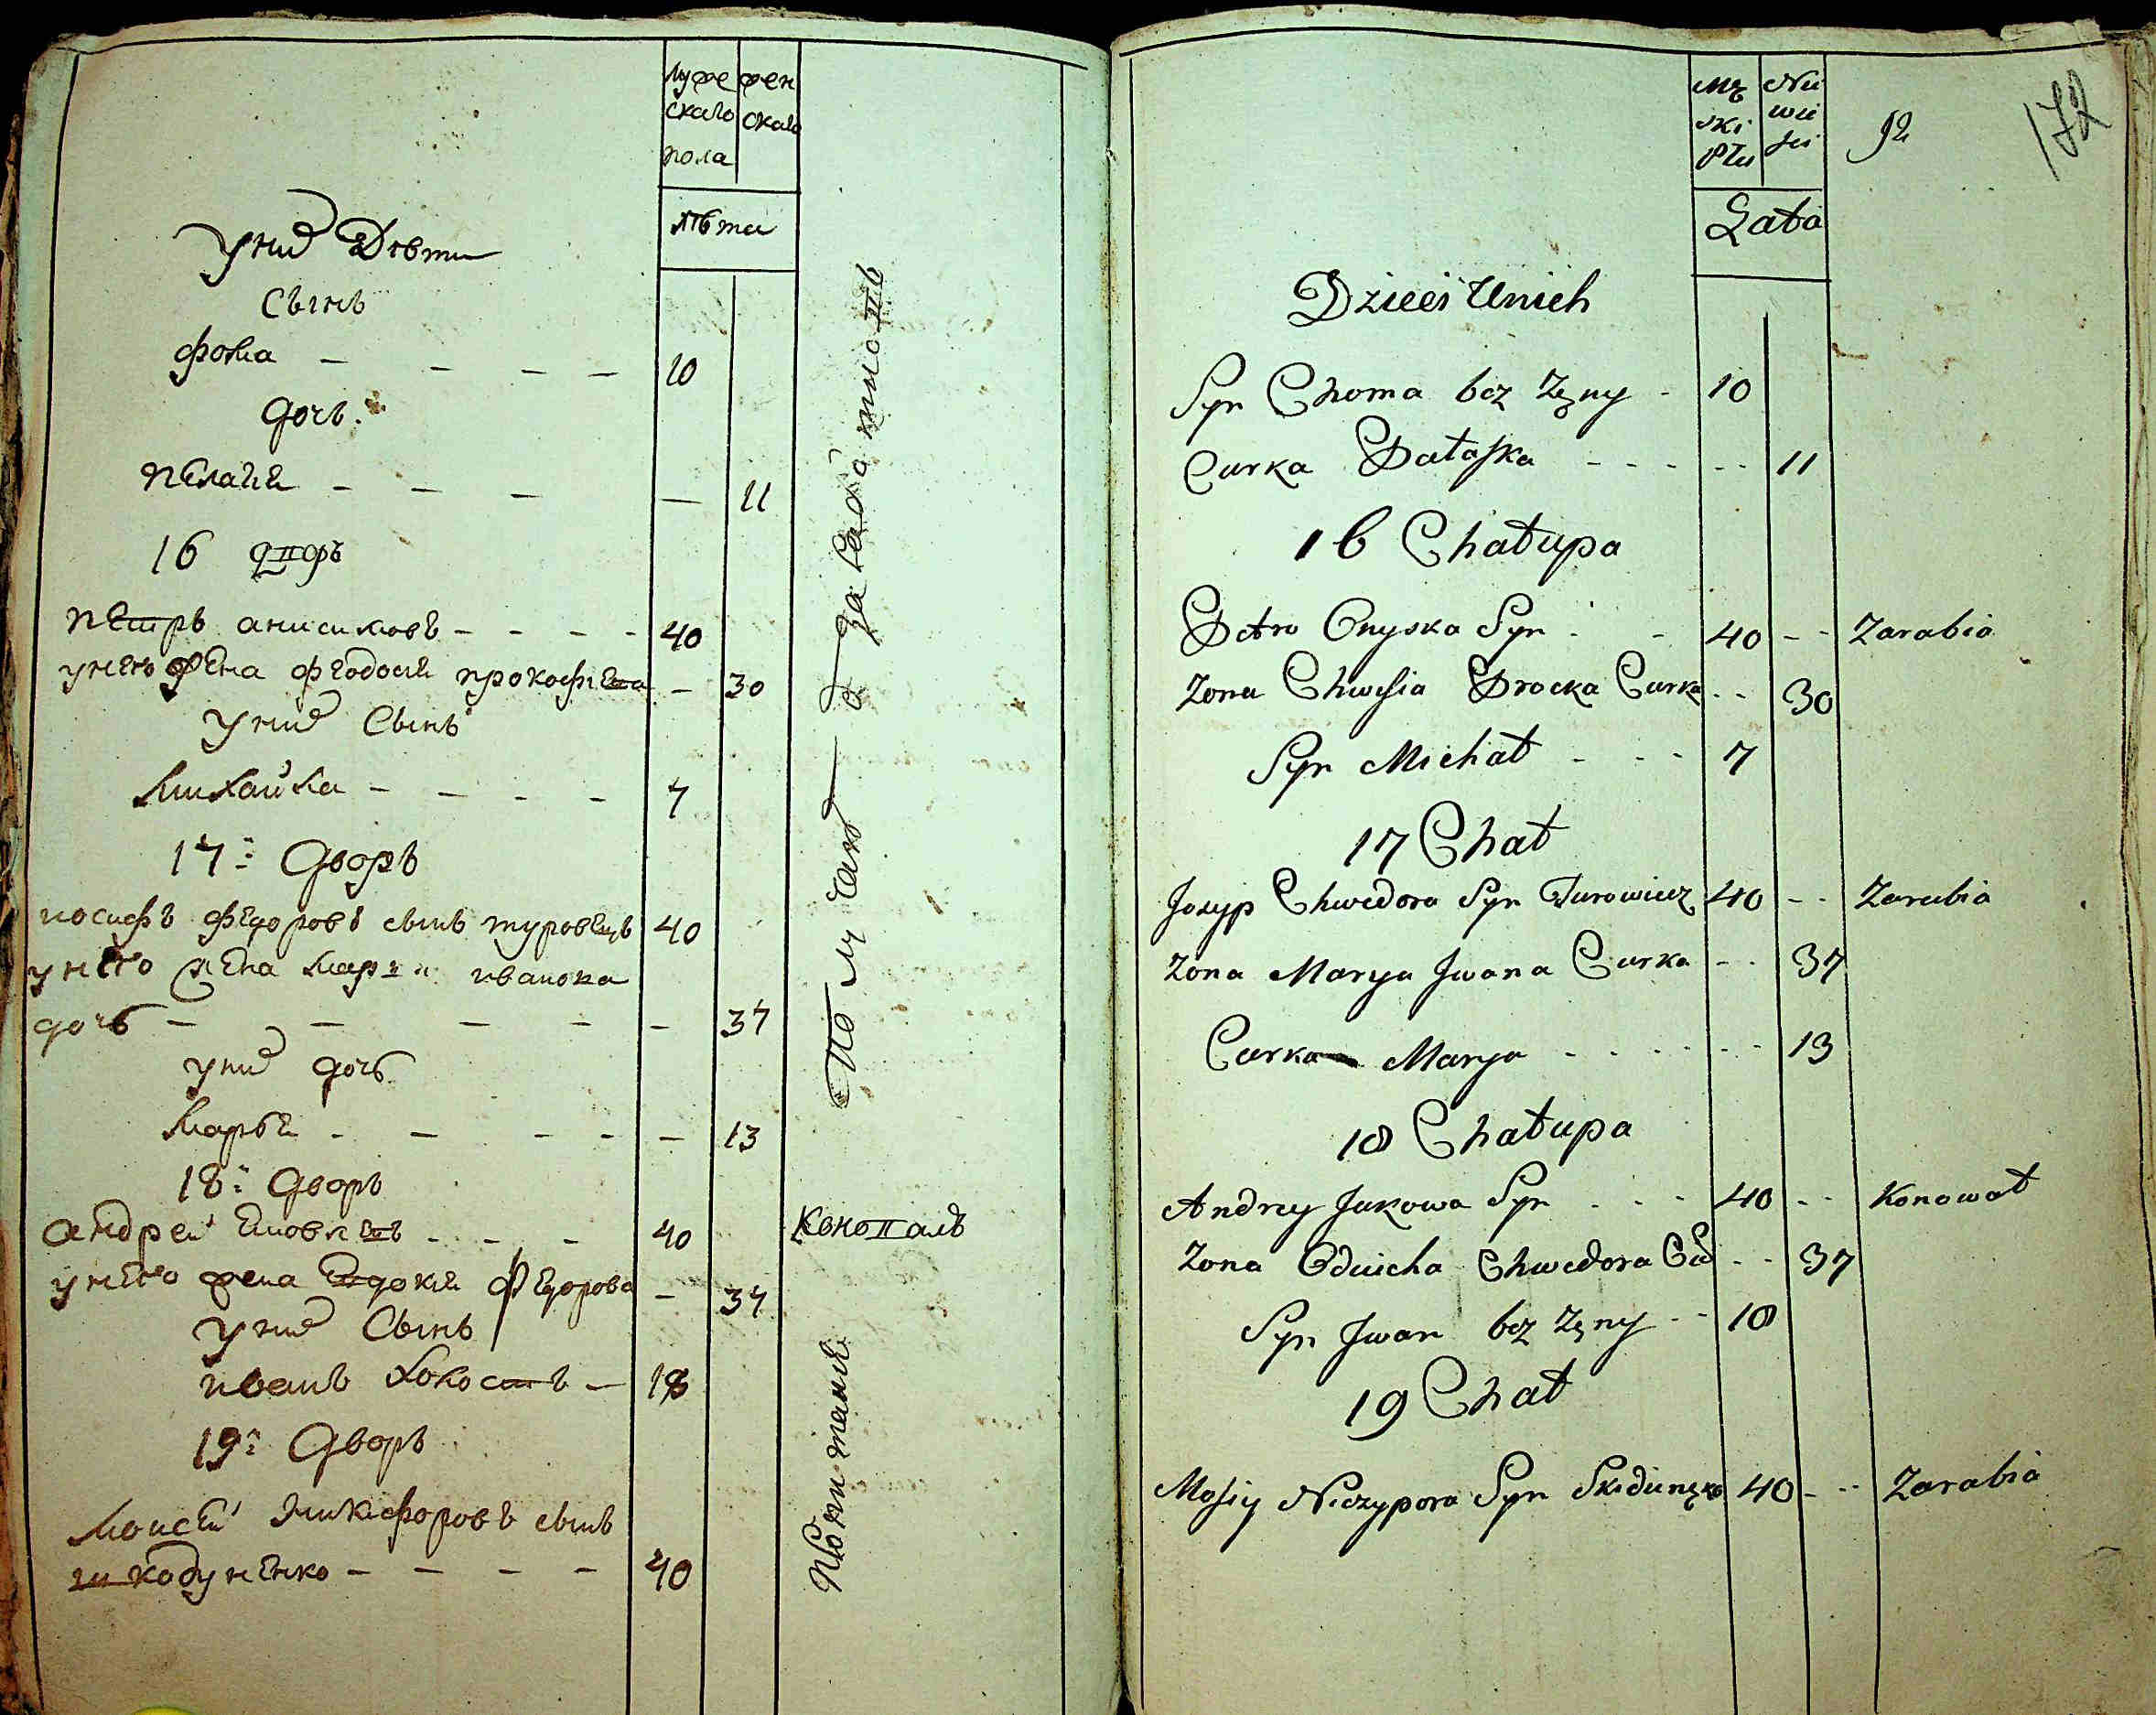 муже
скаго
пола
жен
скаго
лѣта
у них Дѣти
Сынъ
Фома - - - - 10
дочь
Пелагия - - - - 11
16 дворъ
Петръ анисимовъ - - - - 40
у него жена феодосия прокофиева - 30
у них Сынъ
Михайла - - - - 7
17й дворъ
иосифъ федоровъ сынъ туровецъ 40
у него жена мария иванова
дочь - - - - - 37
у них дочь
Марья - - - - - 13
18й дворъ
андрей яковлевъ - - - 40
у него жена евдокия федорова - 37
у них Сынъ
иванъ холостъ - 18
19й дворъ
Моисей никифоровъ сынъ
шкодуненко - - - - 40
заработковъ
Коновалъ
Mę
ski
Płci
Nie
wie
ści
92
172
Lata
Dzieci Unich
Syn Choma bez Żeny - 10
Curka Pałaszka - - - - - 11
16 Chałupa
Petro Onyska Syn - - 40 - - Zarabia
Zona Chwesia Procka Curka - - 30
Syn Michał - - - 7
17 Chał
Jozyp Chwedora Syn Turowiecz 40 - - Zarabia
Zona Marya Jwana Curka - - 37
Curka Marya - - - - - - - 13
18 Chałupa
Andrey Jakowa Syn - - - 40 - - Konował
Zona Oduicha Chwedora Cur - - 37
Syn Jwan bez Żeny - - 18
19 Chał
Mosiy Niczypora Syn Skodunęko 40 - - - Zarabia